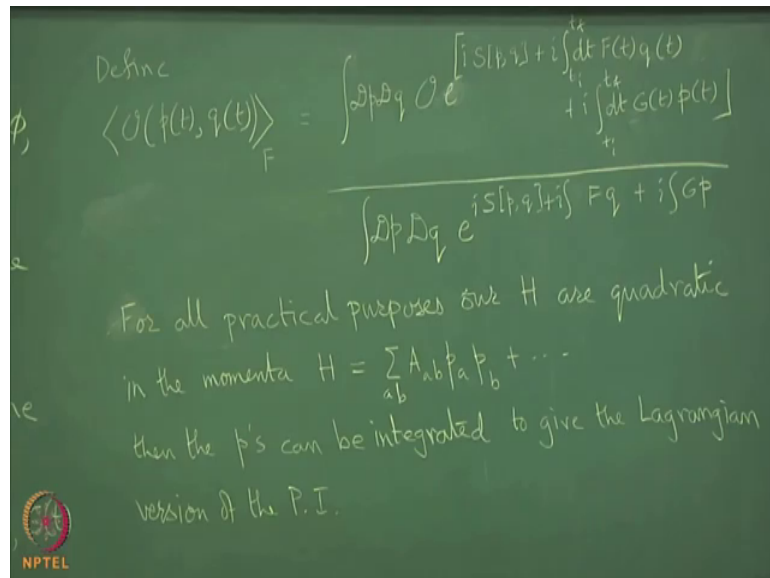 Define
⟨O(p(t), q(t))⟩_F = ∫DpDq O e^[iS[p,q] + i∫_{t_i}^{t_f} dt F(t) q(t)
+ i∫_{t_i}^{t_f} dt G(t) p(t)]
∫Dp Dq e^{iS[p,q] + i∫ Fq + i∫Gp}
For all practical purposes our H are quadratic
in the momenta H = Σ_{ab} A_{ab} p_a p_b + ····
then the p's can be integrated to give the Lagrangian
version of the P.I.
NPTEL